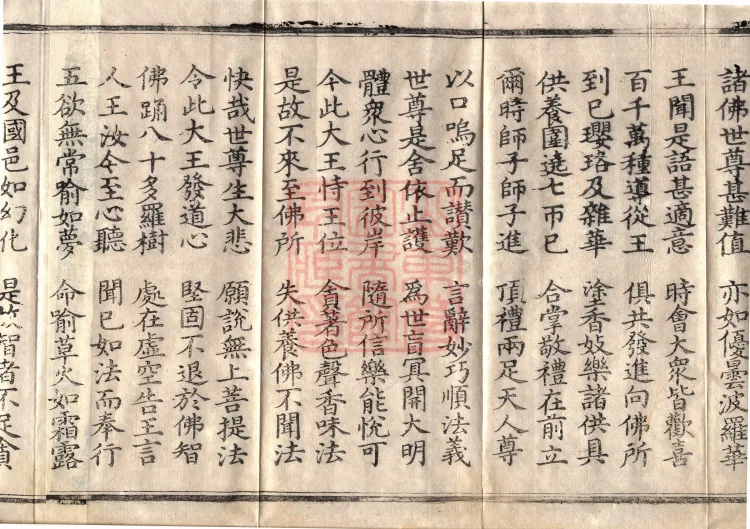 諸佛世尊甚難值 亦如優曇波羅華
王聞是語甚適意 時會大衆皆歡喜
百千萬種導從王 俱共發進向佛所
到已瓔珞及雜華 塗香妓樂諸供具
供養圍遶七帀已 合掌敬禮在前立
爾時師子師子進 頂禮兩足天人尊
以口嗚足而讃歎 言辭妙巧順法義
世尊是舍依止護 為世盲冥開大明
體衆心行到彼岸 隨所信樂能悅可
今此大王恃王位 貪著色聲香味法
是故不來至佛所 失供養佛不聞法
快哉世尊生大悲 願說無上菩提法
令此大王發道心 堅固不退於佛智
佛踊八十多羅樹 處在虛空告王言
人王汝今至心聽 聞已如法而奉行
五欲無常喻如夢 命喻草火如霜露
王及國邑如幻化 是故智者不足貪